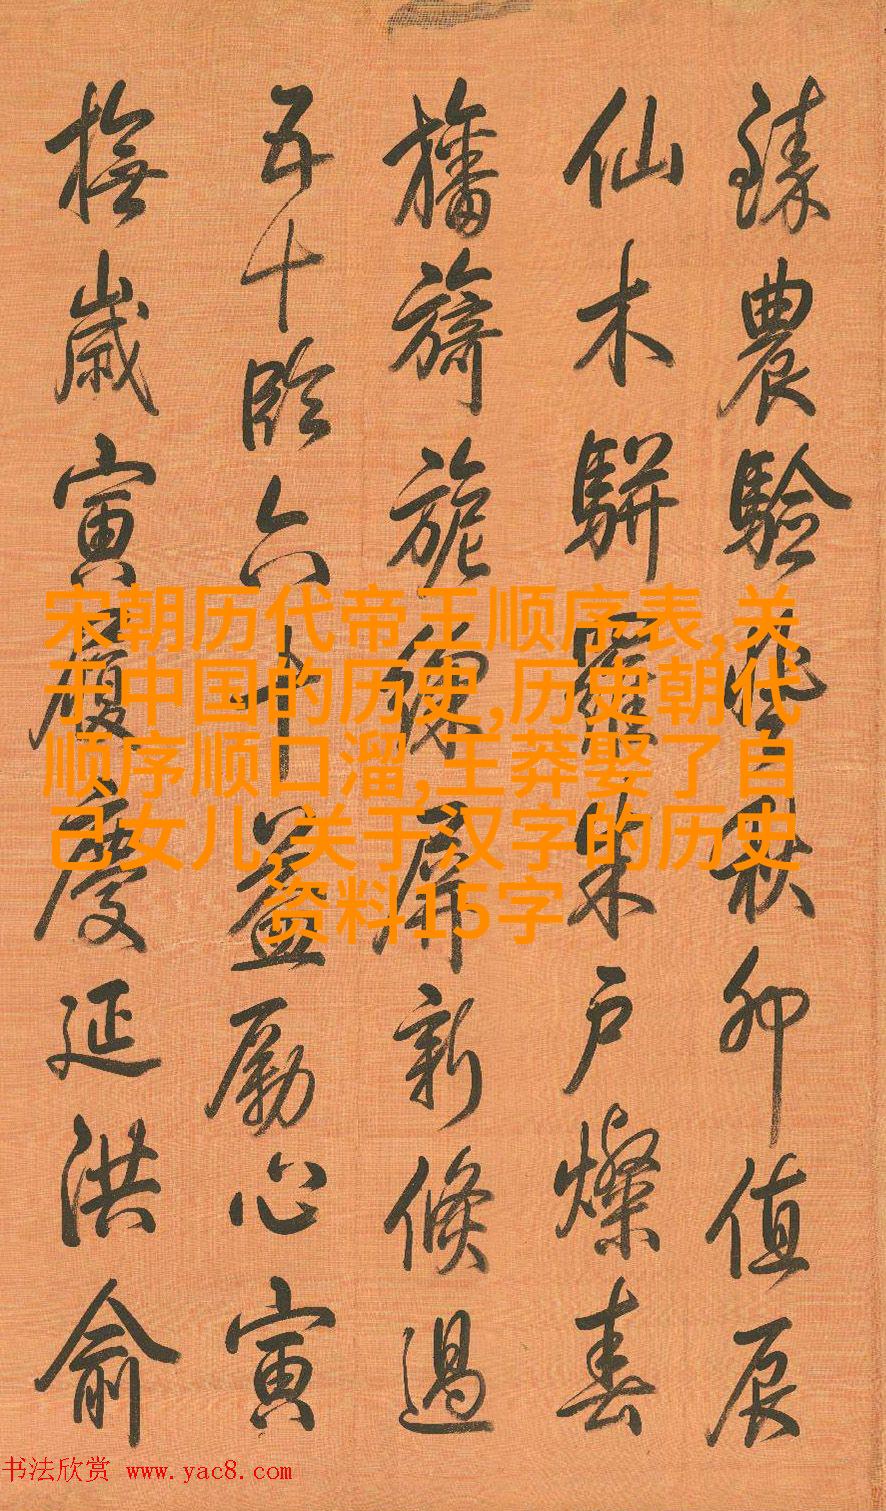 臻農驗秋卯值辰
仙木駢羅朱戶燦春
旛旖旎綵屏新候過
五十臨六十益勵心寅
撫歲寅履慶延洪俞
宋朝历代帝王顺序表,关
于中国的历史,历史朝代
顺序顺口溜,王莽娶了自
己女儿,关于汉字的历史
资料15字
书法欣赏 www.yac8.com